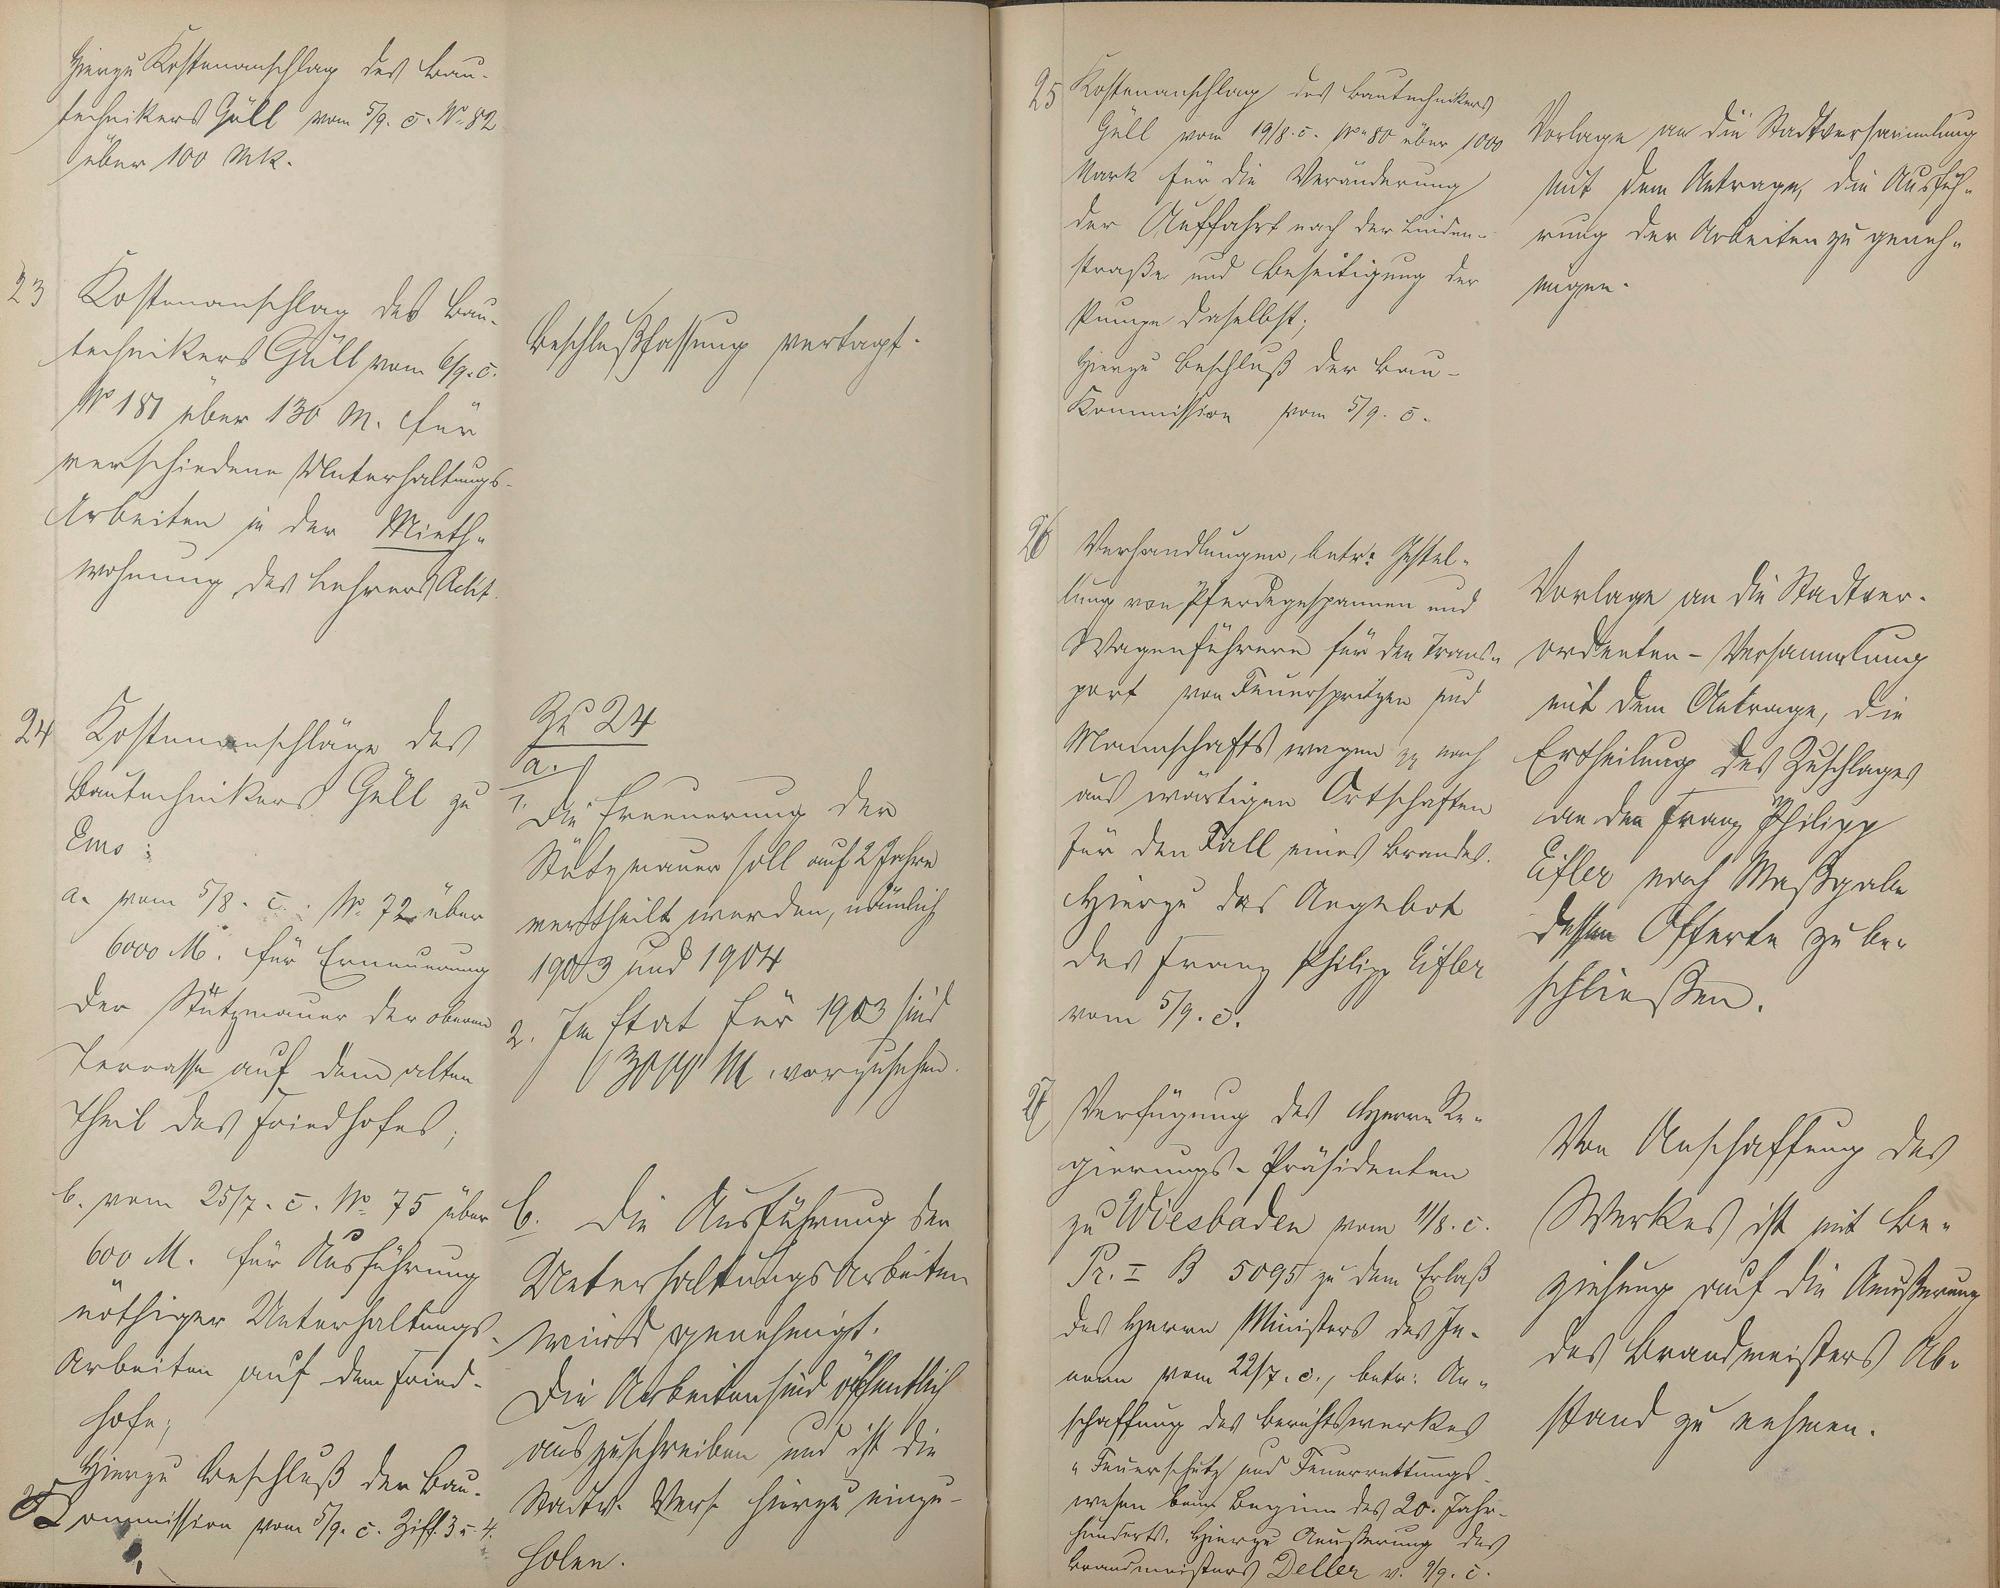 Hierzu Kostenanschlag des Bau-
technikers Güll vom 5/9. c. No 82
über 100 Mk.
23 Kostenanschlag des Bau-
technikers Güll vom 6/9. c.
No 181 über 130 M. für
verschiedene Unterhaltungs-
Arbeiten in der Mieth-
wohnung des Lehrers
Beschlußfassung vertagt.
24 Kostenanschläge des
Bautechnikers Güll zu
Ems:
a. vom 5/8. c. No. 72 über
6000 M. für Erneuerung
der Stützmauer der oberen
Terrasse auf dem alten
Theil des Friedhofes;
b. vom 25/7. c. No. 75 über
600 M. für Ausführung
nöthiger Unterhaltungs-
Arbeiten auf dem Fried-
hofe;
Hierzu Beschluß der Bau-
Commission vom 5/9. c. Ziff. 3 u. 4.
Zu 24
a.
1. Die Erneuerung der
Stützmauer soll auf 2 Jahre
vertheilt werden, nämlich
1903 und 1904
2. Im Etat für 1903 sind
3000 M. vorzusehen.
b. Die Ausführung der
Unterhaltungsarbeiten
wird genehmigt.
Die Arbeiten sind öffentlich
auszuschreiben und ist die
Stadtv. Vers. hierzu einzu-
holen.
25 Kostenanschlag des Bautechnikers
Güll vom 19/8. c. No 80 über 1000
Mark für die Veränderung
der Auffahrt nach der Linden-
straße und Beseitigung der
Pumpe daselbst;
Hierzu Beschluß der Bau-
Kommission vom 5/9. c.
Vorlage an die Stadtversammlung
mit dem Antrage, die Ausfüh-
rung der Arbeiten zu geneh-
migen.
26 Verhandlungen, betr: Gestel-
lung von Pferdegespannen und
Wagenführern für den Trans-
port von Feuerspritzen und
Mannschaftswagen nach
auswärtigen Ortschaften
für den Fall eines Brandes.
Hierzu das Angebot
des Franz Philipp Eifler
vom 5/9. c.
Vorlage an die Stadtver-
ordneten-Versammlung
mit dem Antrage, die
Ertheilung des Zuschlages
an den Franz Philipp
Eifler nach Maßgabe
dessen Offerte zu be-
schließen.
27 Verfügung des Herrn Re-
gierungs-Präsidenten
zu Wiesbaden vom 11/8. c.
Pr. I B 5095 zu dem Erlaß
des Herrn Ministers des In-
nern vom 22/7. c., betr: An-
schaffung des Berichtswerkes
"Feuerschutz und Feuerrettungs-
wesen beim Beginn des 20. Jahr-
hunderts. Hierzu Aeußerung des
Brandmeisters Deller v. 9/9. c.
Von Anschaffung des
Werkes ist mit Be-
ziehung auf die Aeußerung
des Brandmeisters Ab-
stand zu nehmen.